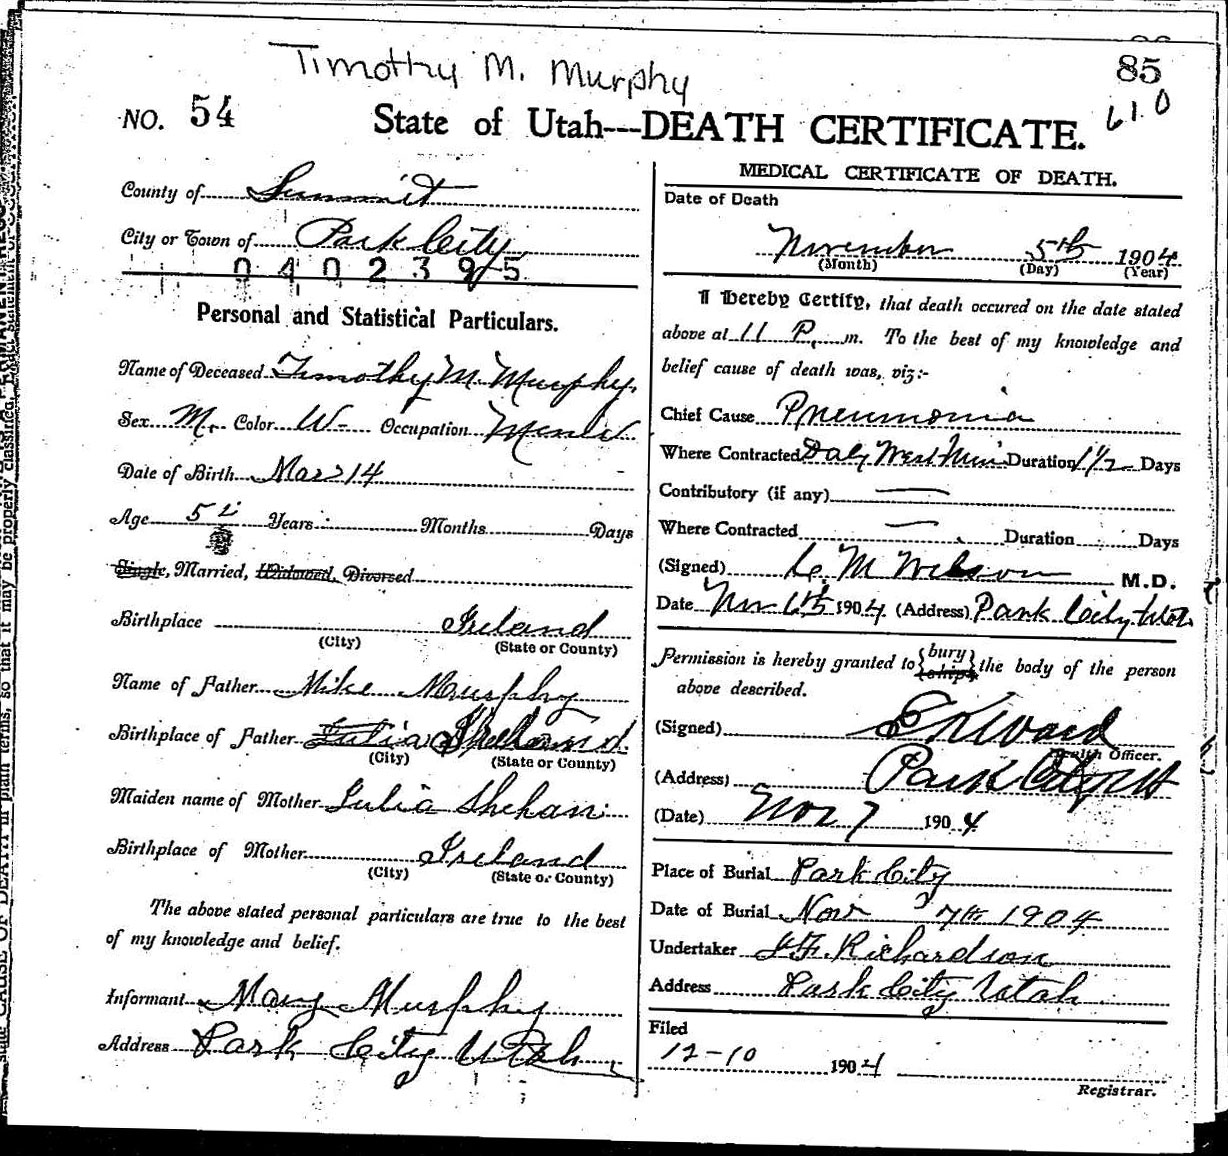 Timothy M. Murphy
85
610
NO. 54
State of Utah---DEATH CERTIFICATE.
County of Summit
City or Town of Park City
0 4 0 2 3 9 5
Personal and Statistical Particulars.
Name of Deceased Timothy M. Murphy.
Sex M. Color W- Occupation Miner
Date of Birth Mar 14
Age 52 Years Months Days
Single, Married, Widowed, Divorsed
Birthplace Ireland
(City) (State or County)
Name of Father Mike Murphy
Birthplace of Father Ireland.
(City) (State or County)
Maiden name of Mother Julia Shehan
Birthplace of Mother Ireland
(City) (State or County)
The above stated personal particulars are true to the best
of my knowledge and belief.
Informant Mary Murphy
Address Park City Utah
MEDICAL CERTIFICATE OF DEATH.
Date of Death
November 5th 1904
(Month) (Day) (Year)
I hereby Certify, that death occured on the date stated
above at 11 P. m. To the best of my knowledge and
belief cause of death was, viz:-
Chief Cause Pneumonia
Where Contracted Daly West Min Duration 1½ Days
Contributory (if any)
Where Contracted Duration Days
(Signed) C. M. Wilson M.D.
Date Nov 6th 1904 (Address) Park City Utah
Permission is hereby granted to {bury
{ship} the body of the person
above described.
(Signed) E K Ward
Health Officer.
(Address) Park City Ut
(Date) Nov 7 1904
Place of Burial Park City
Date of Burial Nov 7th 1904
Undertaker J. F. Richardson
Address Park City Utah
Filed
12-10 1904
Registrar.